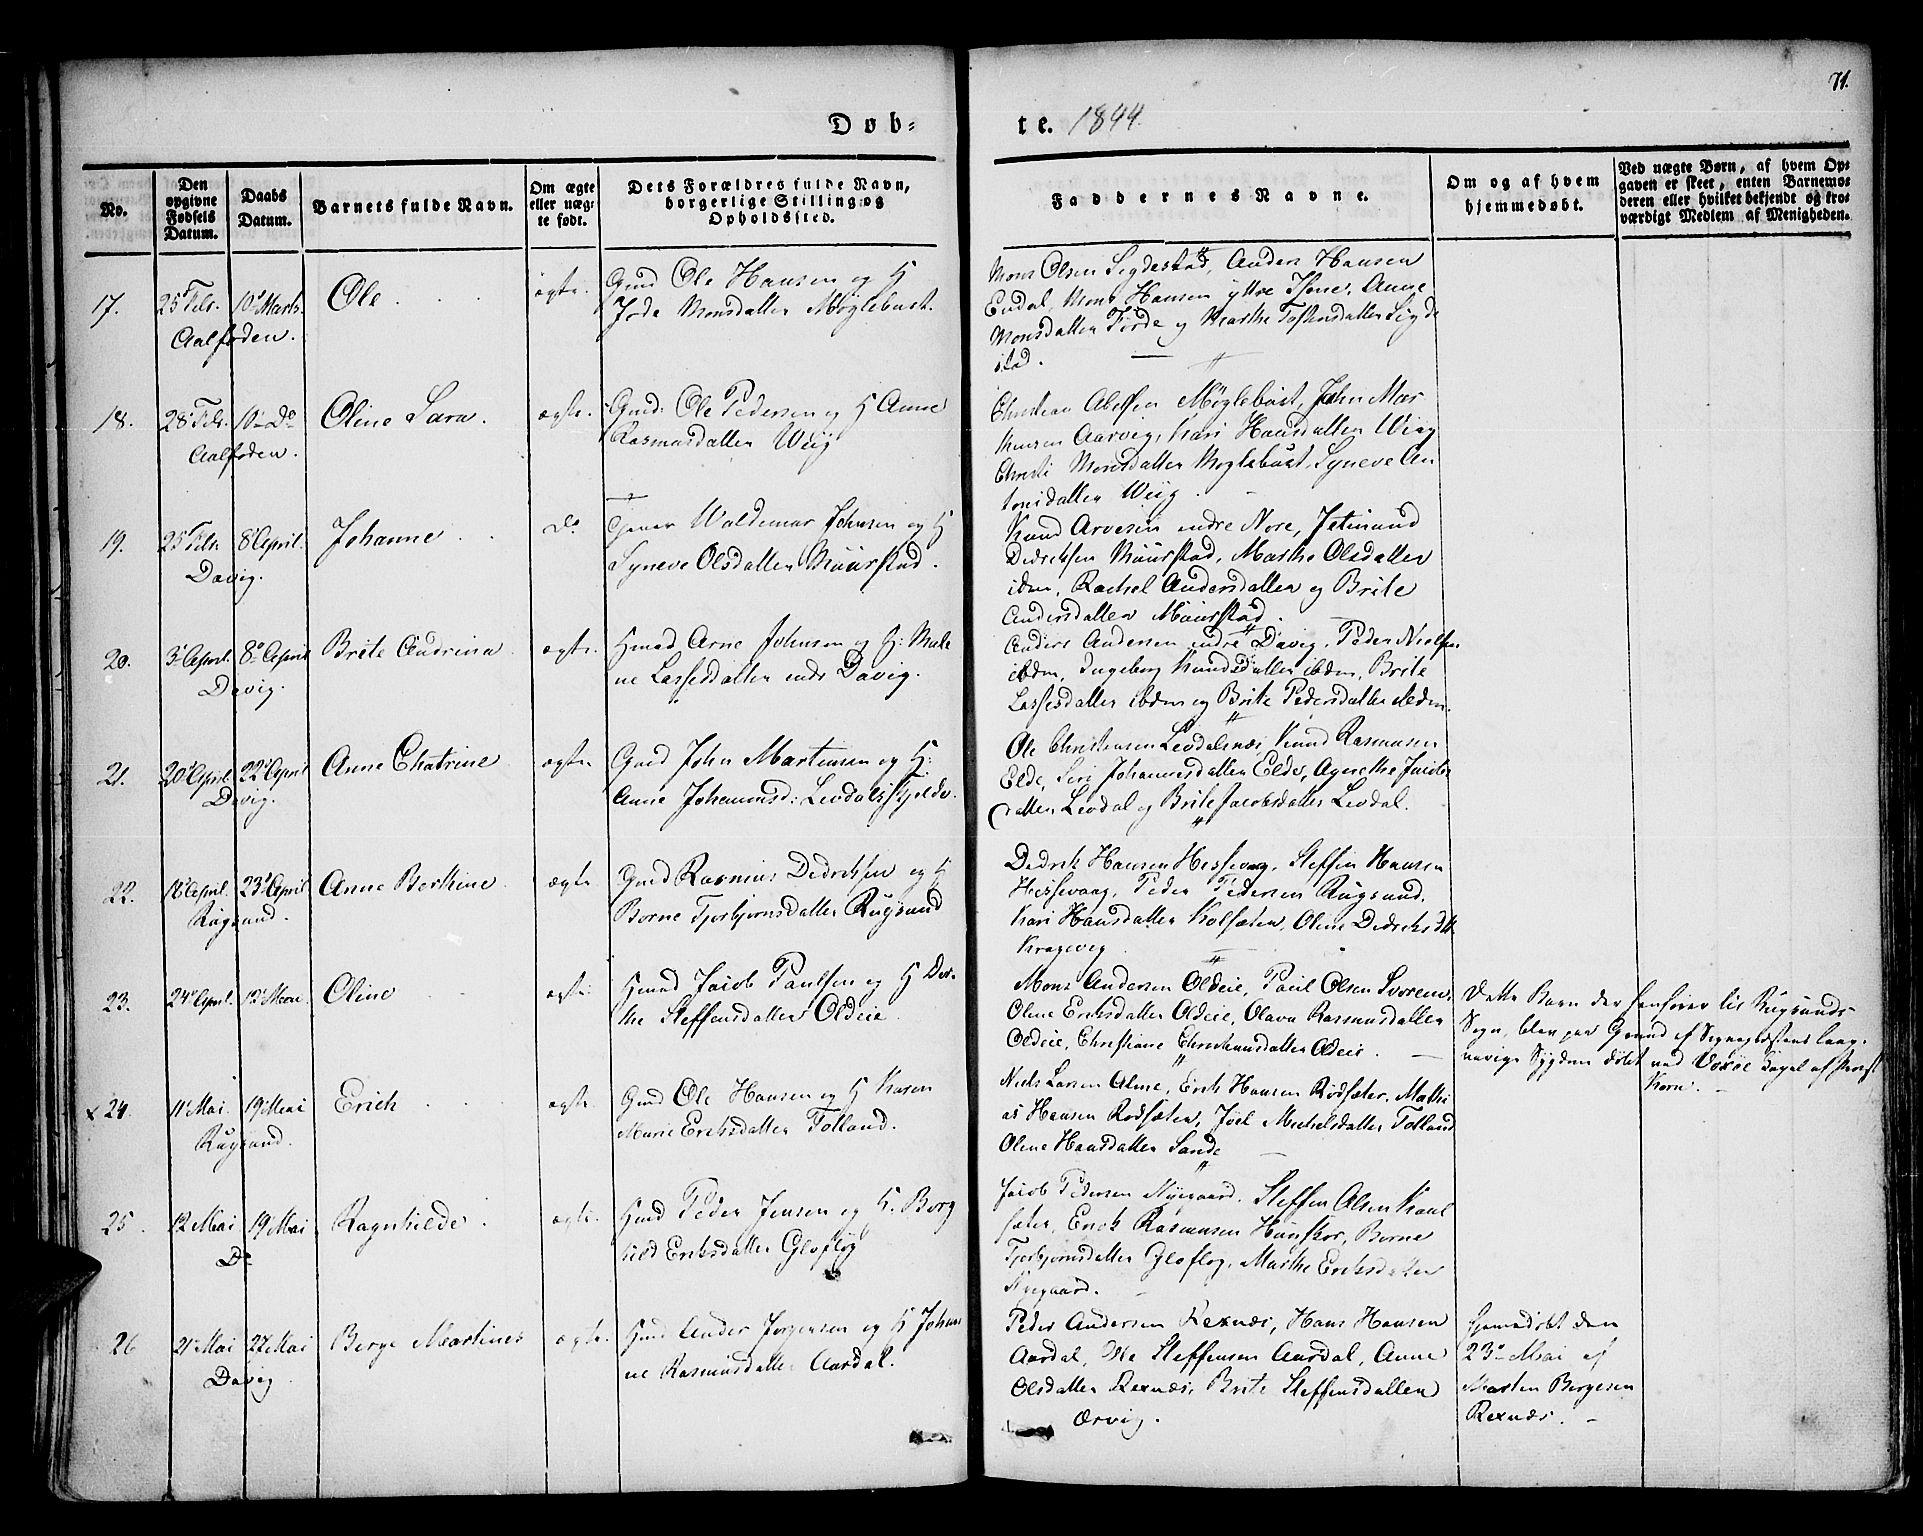 71.
Døb=
te. 1844.
No.
Den opgivne Fødsels Datum.
Daabs Datum.
Barnets fulde Navn.
Om ægte eller uæg= te født.
Dets Forældres fulde Navn, borgerlige Stilling og Opholdssted.
Faddernes Navne.
Om og af hvem hjemmedøbt.
Ved uægte Børn, af hvem Op= gaven er skeet, enten Barnemo= deren eller hvilket bekjendt og tro= værdigt Medlem af Menigheden.
17. 25 Febr. 10 Marts. Ole ægte. Gmd Ole Hansen og H
Aalfoden. Monsdatter Møglebust.
Mons Olsen Sigdestad, Anders Hansen
Endal, Mons Hansen yttre Hene, Anne
Monsdatter Førde og Marthe Tostensdatter Sigde
stad.
18. 28 Febr. 10 Do Oline Sara. ægte. Gmd: Ole Pedersen og H Anne
Aalfoden. Rasmusdatter Wiig
Christian Abelsen Møglebust, John Mar
kusen Aarvig, Kari Hansdatter Wiig
Christi Monsdatter Møglebust, Syneve An
tonsdatter Wiig.
19. 25 Febr. 8 April. Johanne Do Waldemar Johnsen og H
Davig. Syneve Olsdatter Muurstad.
Knud Arvesen indre Nore,
Dedriksen Muurstad, Marthe Olsdatter
idem, Rachel Andersdatter og Brite
Andersdatter Muurstad.
20. 3 April. 8 April Brite Andrina ægte. Hmd Arne Johnsen og H: Male
Davig. ne Lassesdatter indre Davig.
Anders Andersen indre Davig, Peder Nielsen
ibdm, Ingeborg Knudsdatter ibdm, Brite
Lassesdatter ibdm og Brite Pedersdatter ibdm.
21. 20 April 22 April Anne Chatrine ægte. Gmd John Martinusen og H:
Davig. Anne Johannesd: Levdalsfjelde.
Ole Christensen Levdalsnæs, Knud Rasmusen
Elde, Siri Johannesdatter Elde, Agnethe Jacobs
datter Levdal og Brite Jacobsdatter Levdal.
22. 18 April. 23 April Anne Berthine ægte Gmd Rasmus Dedriksen og H
Rugsund. Borne Torbjørnsdatter Rugsund
Dedrik Hansen Hessevaag, Steffen Hansen
Hessevaag, Peder Pedersen Rugsund,
Kari Hansdatter Kolsæter, Oline Dedriksdtt
Kragevig
23. 24 April. 12 Mai. Oline ægte: Hmd Jacob Paulsen og H Dor=
the Steffensdatter Oldeie.
Mons Andersen Oldeie, Paul Olsen Svoren,
Oline Eriksdatter Oldeie, Olava Rasmusdatter
Oldeie, Christiane Christiansdatter Oldeie.
Dette Barn der henhører til Rugsunds
Sogn, blev paa Grund af Sognepræstens lang=
varige Sygdom døbt ved Capel af Præst
Korn.
x 24. 11 Mai. 19 Mai Erich ægte. Gmd Ole Hansen og H Karen
Rugsund. Marie Eriksdatter Totland.
Niels Larsen Alme, Erik Hansen Rødsæter, Mathi
as Hansen Rødsæter, Joel Michelsdatter Totland
Oline Hansdatter Sande
25. 12 Mai 19 Mai Ragnhilde ægte. Hmd Peder Jensen og H. Borg
Do hild Eriksdatter Gloflog
Jacob Pedersen Nygaard, Steffen Olsen Kaal
sæter, Erick Rasmusen Hunskor, Borne
Torbjørnsdatter Gloflog, Marthe Eriksdatter
Nygaard.
26 21 Mai 27 Mai Berge Martines ægte. Hmd Ander Jørgensen og H Johan
Davig ne Rasmusdatter Aardal.
Peder Andersen Rexnæs, Hans Hansen
Aardal, Ole Steffensen Aardal, Anne
Olsdatter Rexnæs, Brite Steffensdatter
Ørvig.
hjemmedøbt den
23 Mai af
Marten Bergesen
Rexnæs.